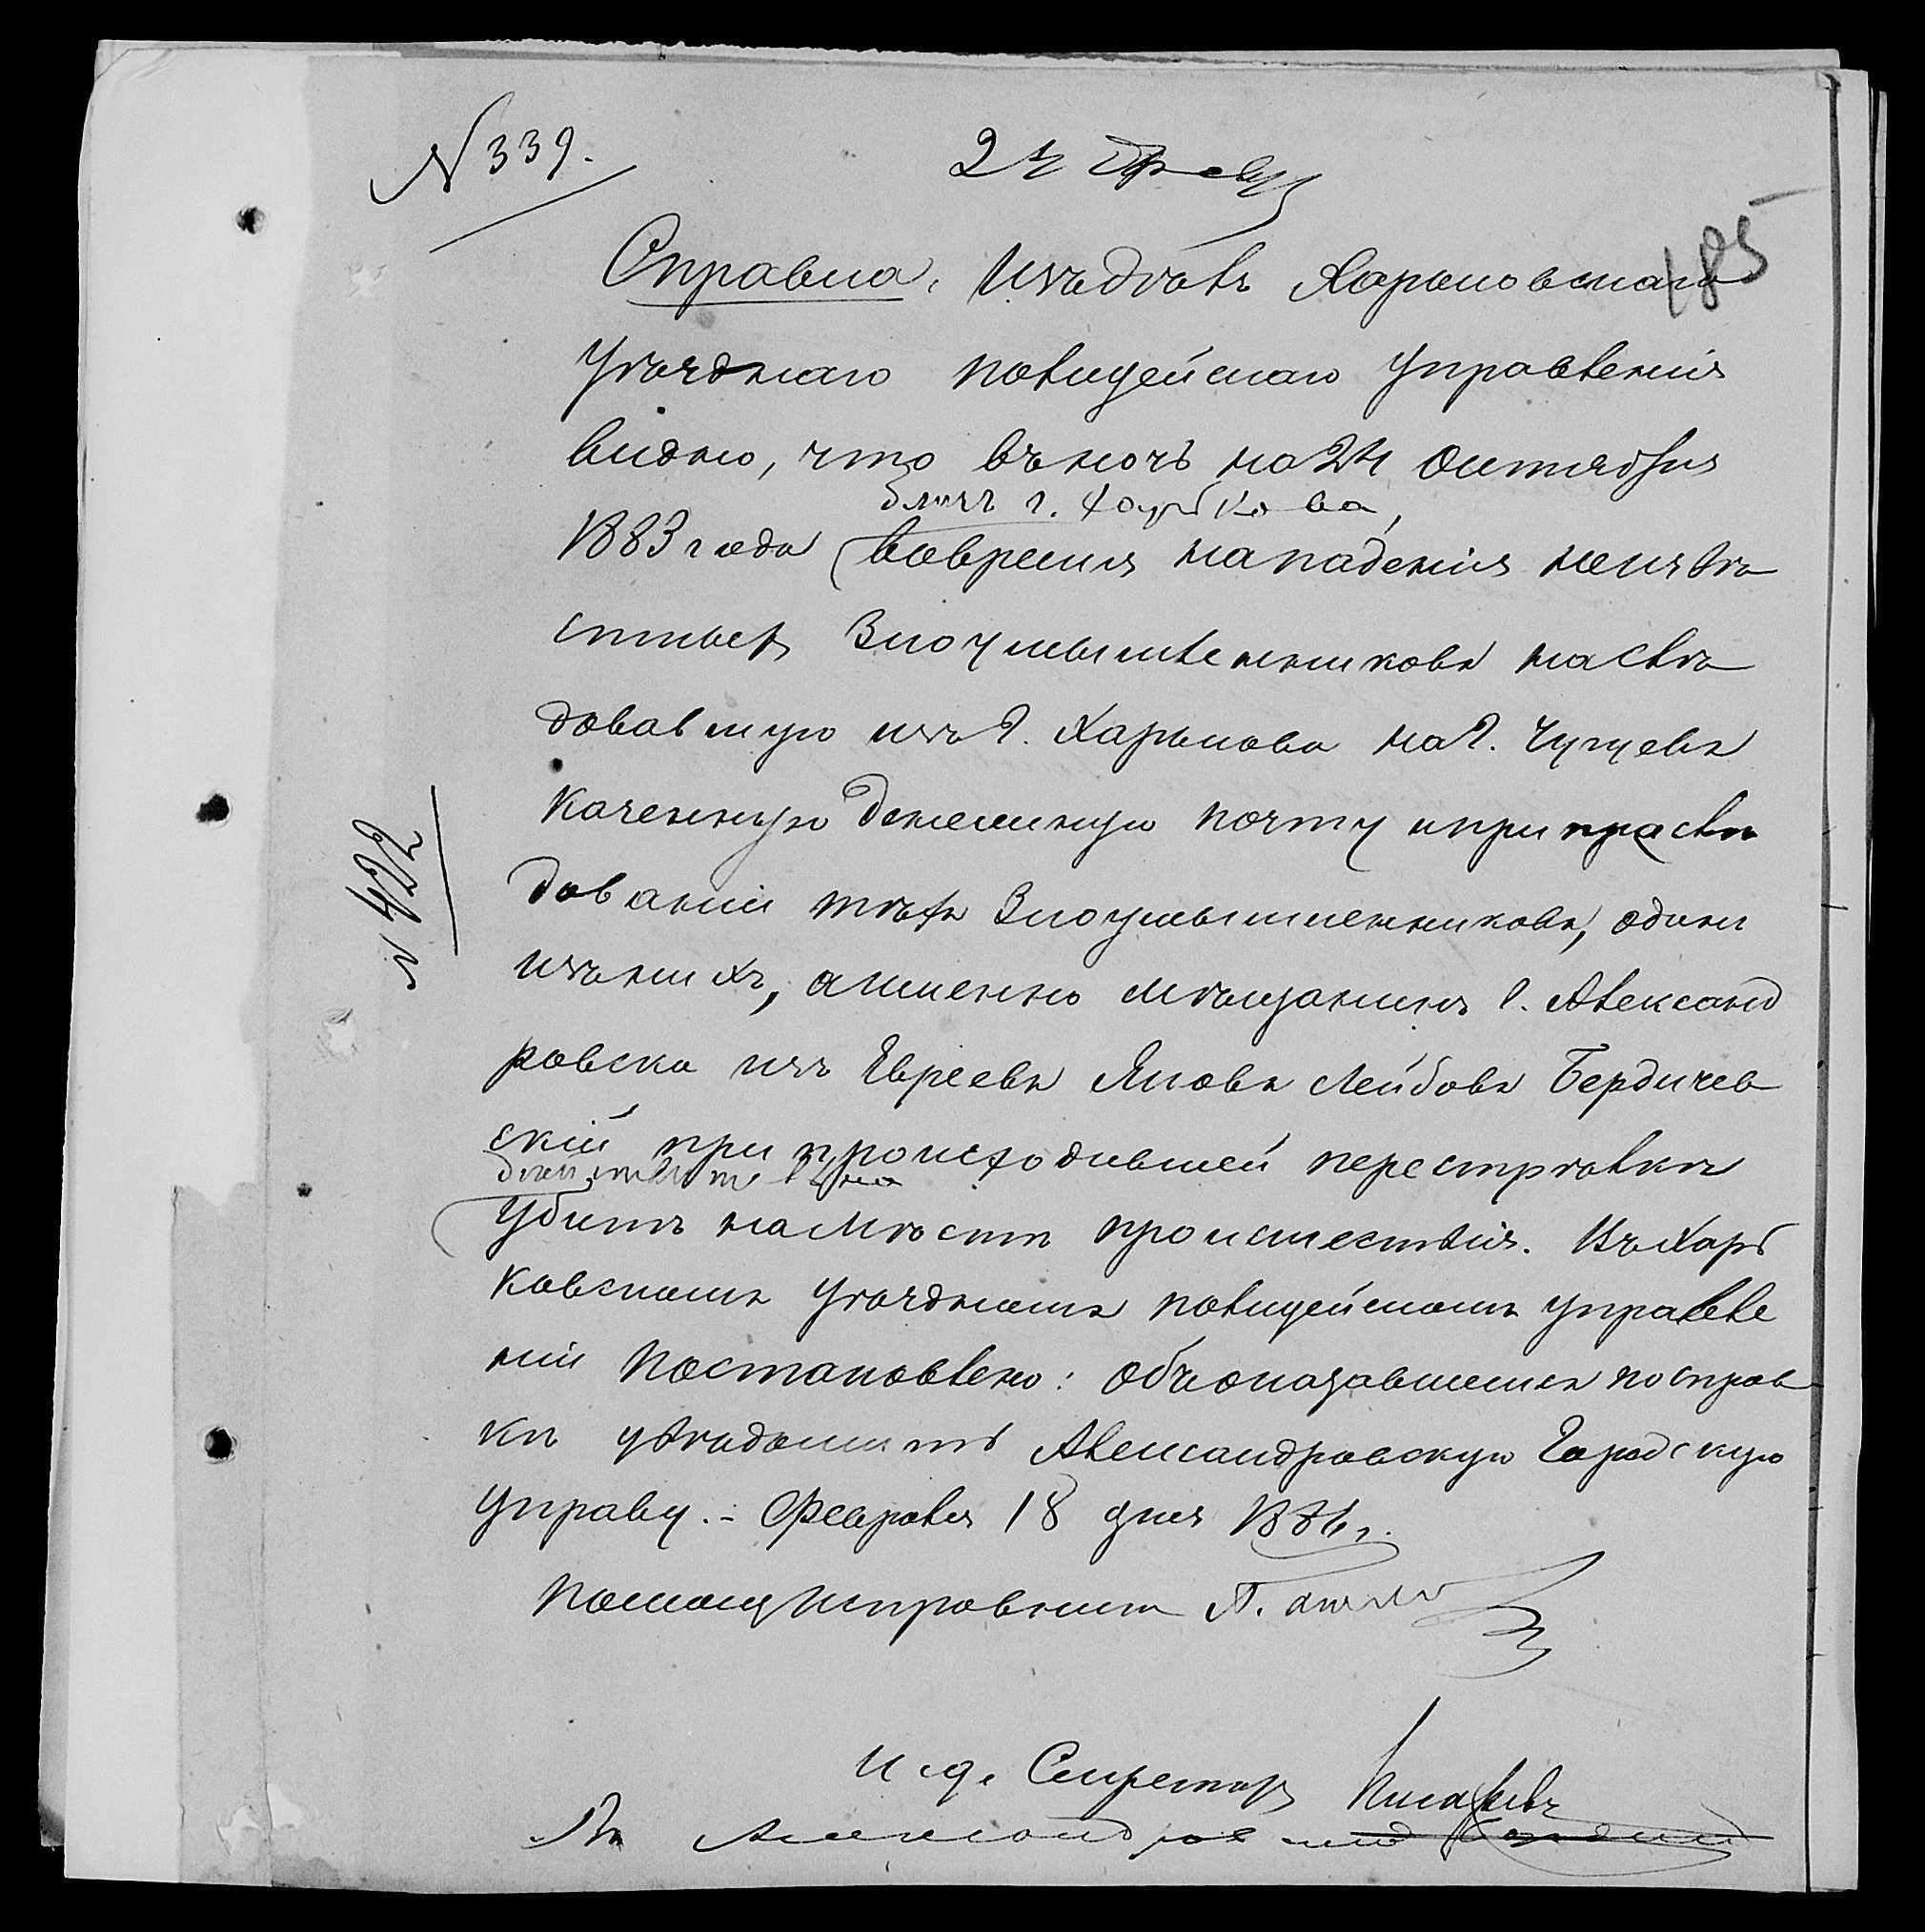 N 339.
24 Февр
185
Справка. Изъ дѣлъ Харьковскаго
Уѣзднаго полицейскаго Управленія
видно, что въ ночь на 24 Октября
близъ г. Харькова,
1883 года вовремя нападенія неизвѣ
стныхъ Злоумышленниковъ на слѣ
довавшую изъ г. Харькова на г. Чугуевъ
казенную денежную почту и при преслѣ
дованіи тѣхъ Злоумышленниковъ, одинъ
изъ нихъ, а именно мѣщанинъ г. Александ
ровска изъ Евреевъ Яковъ Лейбовъ Бердичев
скій при происходившей перестрѣлкѣ
дѣйствительно
Убитъ на мѣстѣ происшествія. Въ Харь
ковскомъ Уѣздномъ полицейскомъ управле
ніи постановлено: объ оказавшемся по справ
кѣ увѣдомить Александровскую Городскую
Управу. - Февраля 18 дня 1886 г.
N 422
Помощ Исправника П.
И. д. Секретаря
Въ Александровскую